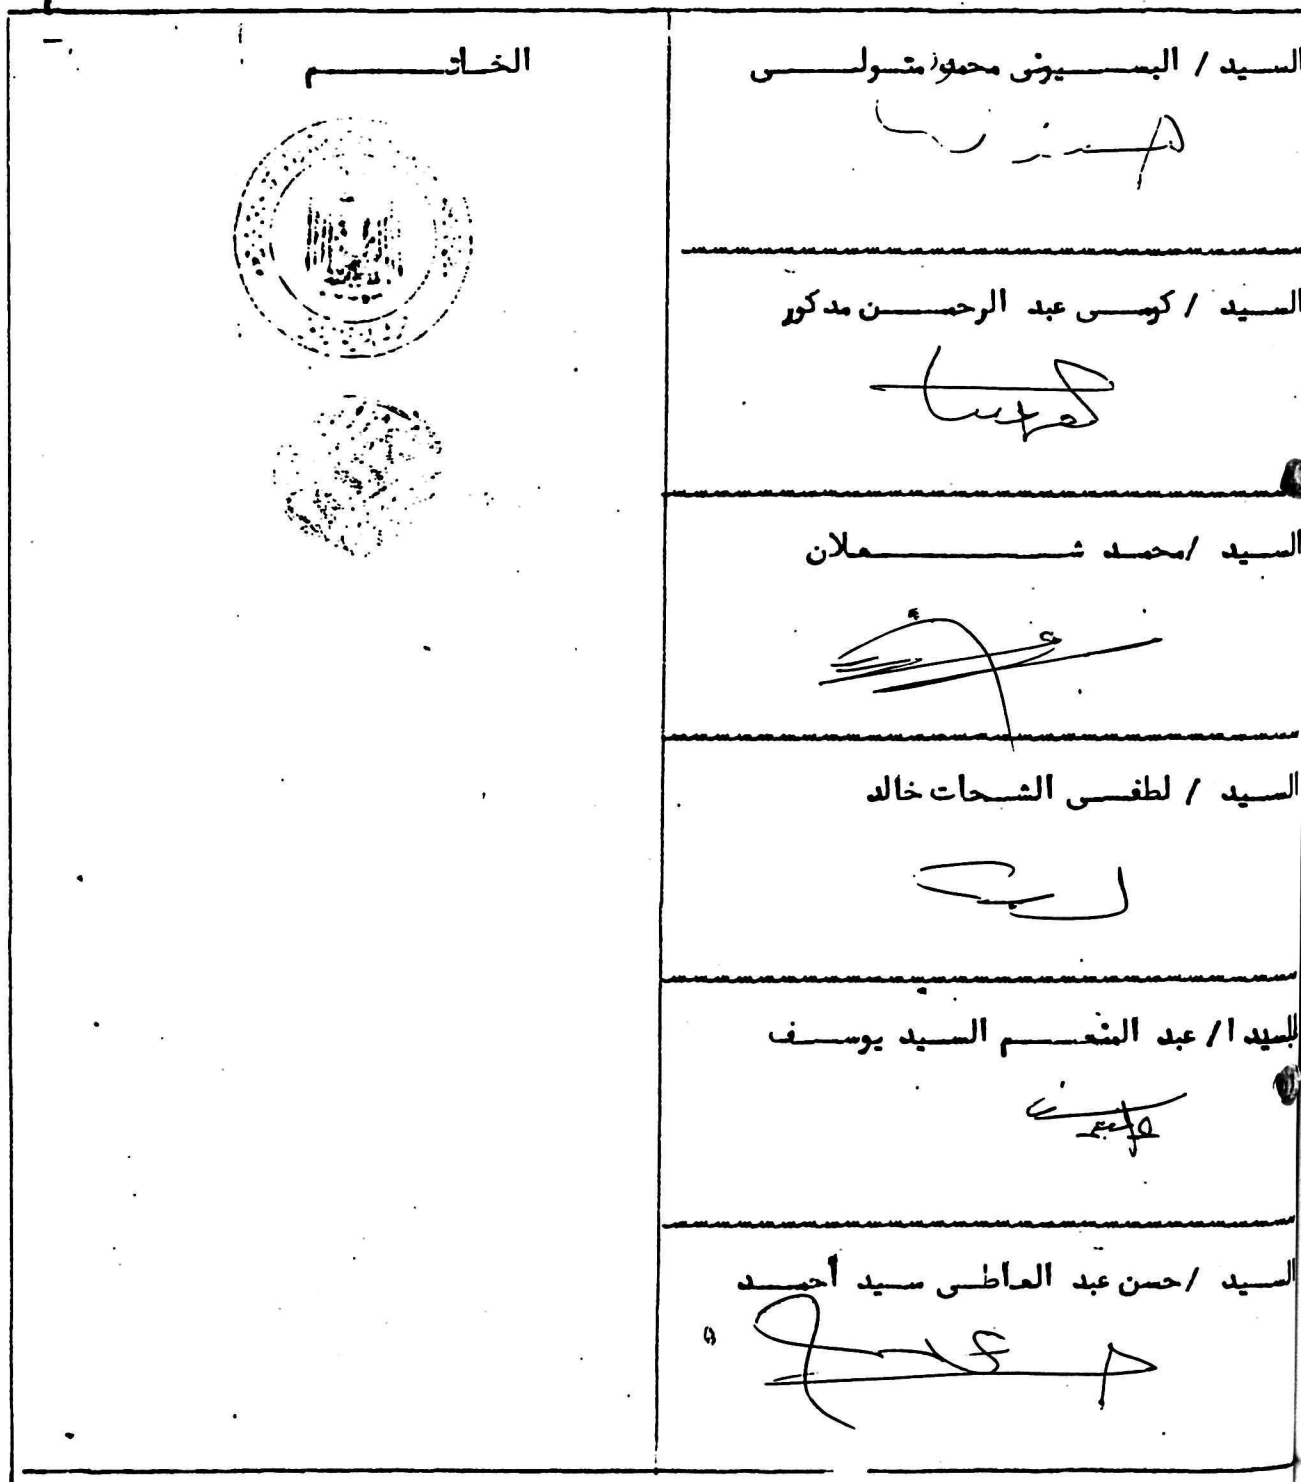 السيد / البسيونى محمود متولى
الخاتم
السيد / كرمى عبد الرحمن مدكور
السيد / محمد شعلان
السيد / لطفى الشحات خالد
السيد ا/ عبد المنعم السيد يوسف
السيد / حسن عبد العاطى سيد أحمد